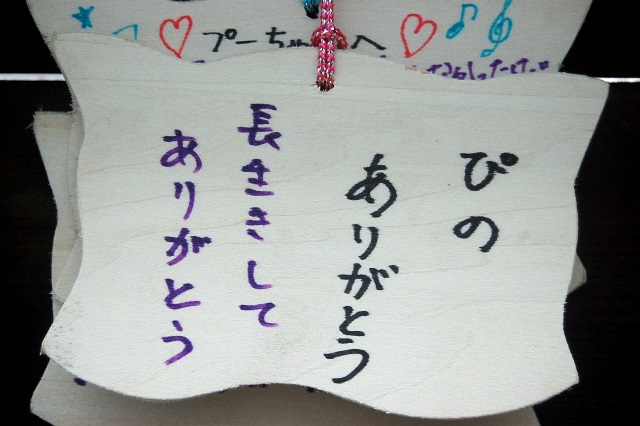 プーちゃんへ
ぴの
ありがとう
長生きして
ありがとう